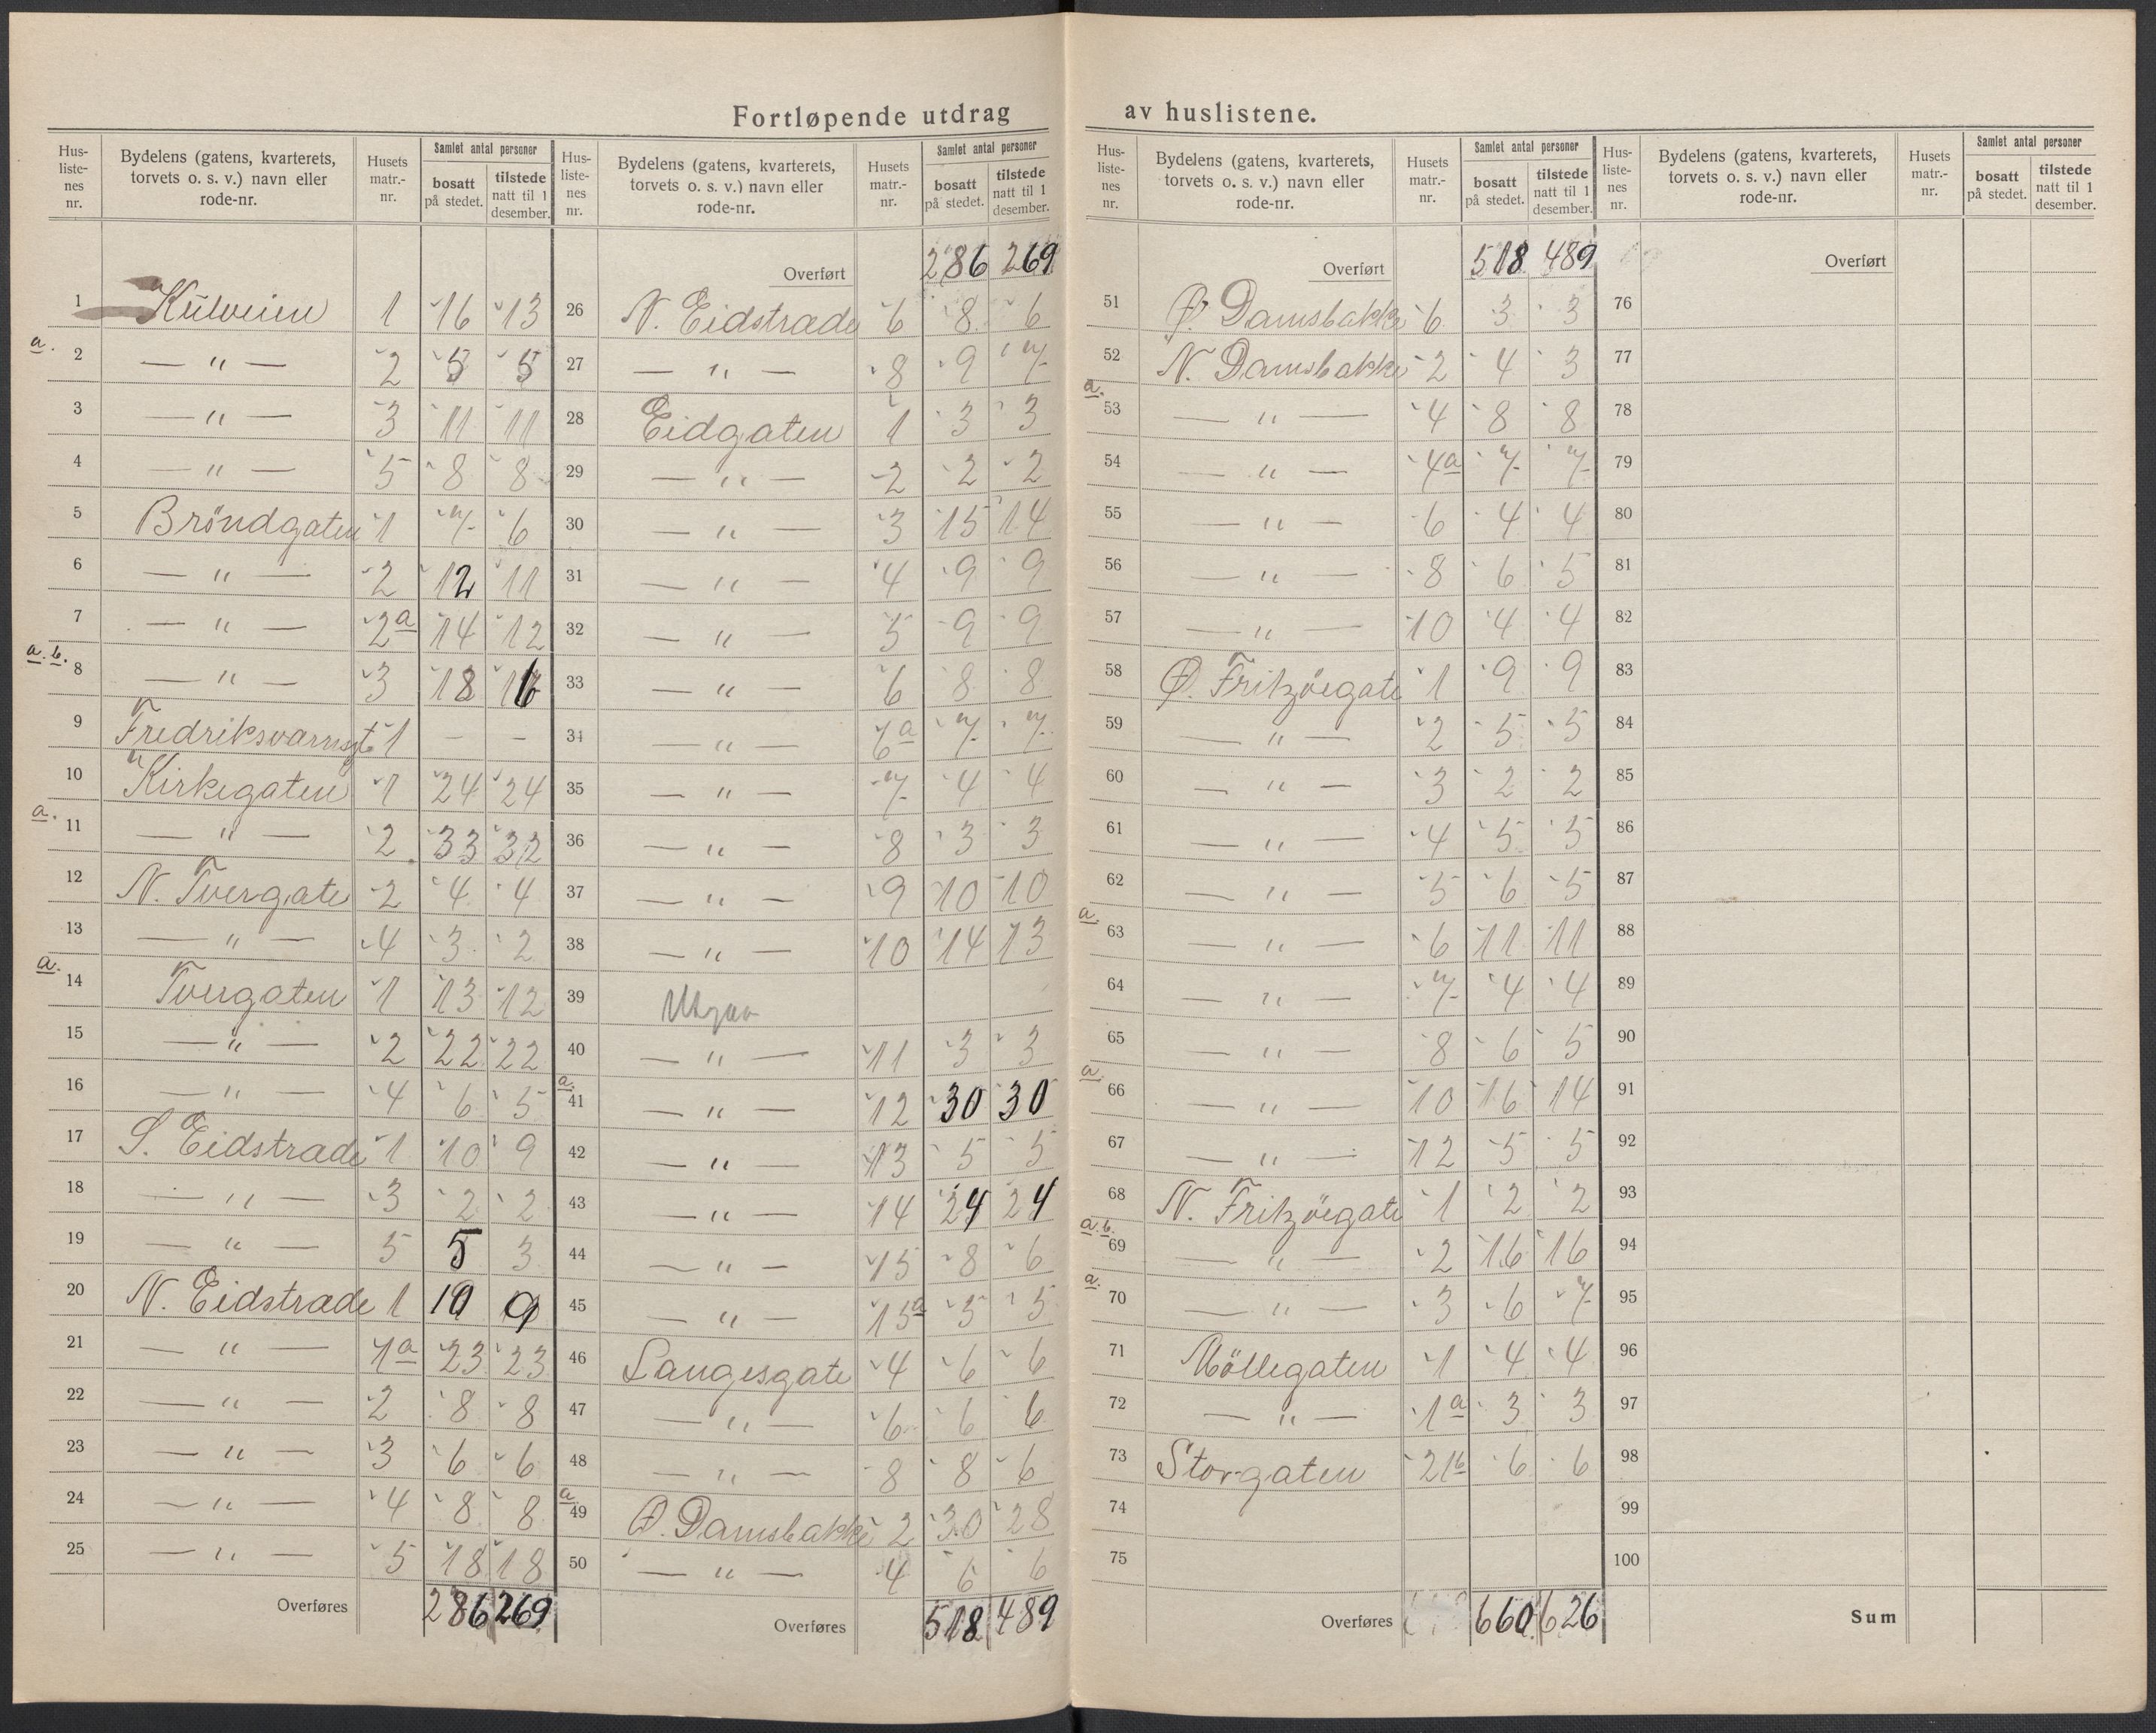 Fortløpende utdrag av huslistene.
Hus-liste-nes nr. | Bydelens (gatens, kvarterets, torvets o. s. v.) navn eller rode-nr. | Husets matr.-nr. | Samlet antal personer bosatt på stedet. | tilstede natt til 1 desember.
1 Kulveien 1 16 13
a. 2 — " — 2 5 5
3 — " — 3 11 11
4 — " — 5 8 8
5 Bröndgaten 1 7 6
6 — " — 2 12 11
7 — " — 2a 14 12
a. b. 8 — " — 3 18 16
9 Fredriksvärnsgt. 1 — —
10 Kirkegaten 1 24 24
a. 11 — " — 2 33 32
12 N. Tvergate 2 4 4
13 — " — 4 3 2
a. 14 Tvergaten 1 13 12
15 — " — 2 22 22
16 — " — 4 6 5
17 S. Eidstrade 1 10 9
18 — " — 3 2 2
19 — " — 5 5 3
20 N. Eidstrade 1 10 9
21 — " — 1a 23 23
22 — " — 2 8 8
23 — " — 3 6 6
24 — " — 4 8 8
25 — " — 5 18 18
Overføres 286 269
Hus-liste-nes nr. | Bydelens (gatens, kvarterets, torvets o. s. v.) navn eller rode-nr. | Husets matr.-nr. | Samlet antal personer bosatt på stedet. | tilstede natt til 1 desember.
Overført 286 269
26 N. Eidstrade 6 8 6
27 — " — 8 9 7
28 Eidgaten 1 3 3
29 — " — 2 2 2
30 — " — 3 15 14
31 — " — 4 9 9
32 — " — 5 9 9
33 — " — 6 8 8
34 — " — 6a 7 7
35 — " — 7 4 4
36 — " — 8 3 3
37 — " — 9 10 10
38 — " — 10 14 13
39 Utgaar
40 — " — 11 3 3
a. 41 — " — 12 30 30
42 — " — 13 5 5
43 — " — 14 24 24
44 — " — 15 8 6
45 — " — 15a 5 5
46 Langesgate 4 6 6
47 — " — 6 6 6
48 — " — 8 8 6
a. 49 Ø. Damsbakke 2 30 28
50 — " — 4 6 6
Overføres 518 489
Hus-liste-nes nr. | Bydelens (gatens, kvarterets, torvets o. s. v.) navn eller rode-nr. | Husets matr.-nr. | Samlet antal personer bosatt på stedet. | tilstede natt til 1 desember.
Overført 518 489
51 Ø. Damsbakke 6 3 3
52 N. Damsbakke 2 4 3
a. 53 — " — 4 8 8
54 — " — 4a 7 7
55 — " — 6 4 4
56 — " — 8 6 5
57 — " — 10 4 4
58 Ø. Fritzöegate 1 9 9
59 — " — 2 5 5
60 — " — 3 2 2
61 — " — 4 5 5
62 — " — 5 6 5
a. 63 — " — 6 11 11
64 — " — 7 4 4
65 — " — 8 6 5
a. 66 — " — 10 16 14
67 — " — 12 5 5
68 N. Fritzöegate 1 2 2
a. b. 69 — " — 2 16 16
a. 70 — " — 3 6 7
71 Möllegaten 1 4 4
72 — " — 1a 3 3
73 Storgaten 21b 6 6
74
75
Overføres 660 626
Hus-liste-nes nr. | Bydelens (gatens, kvarterets, torvets o. s. v.) navn eller rode-nr. | Husets matr.-nr. | Samlet antal personer bosatt på stedet. | tilstede natt til 1 desember.
Overført
76
77
78
79
80
81
82
83
84
85
86
87
88
89
90
91
92
93
94
95
96
97
98
99
100
Sum